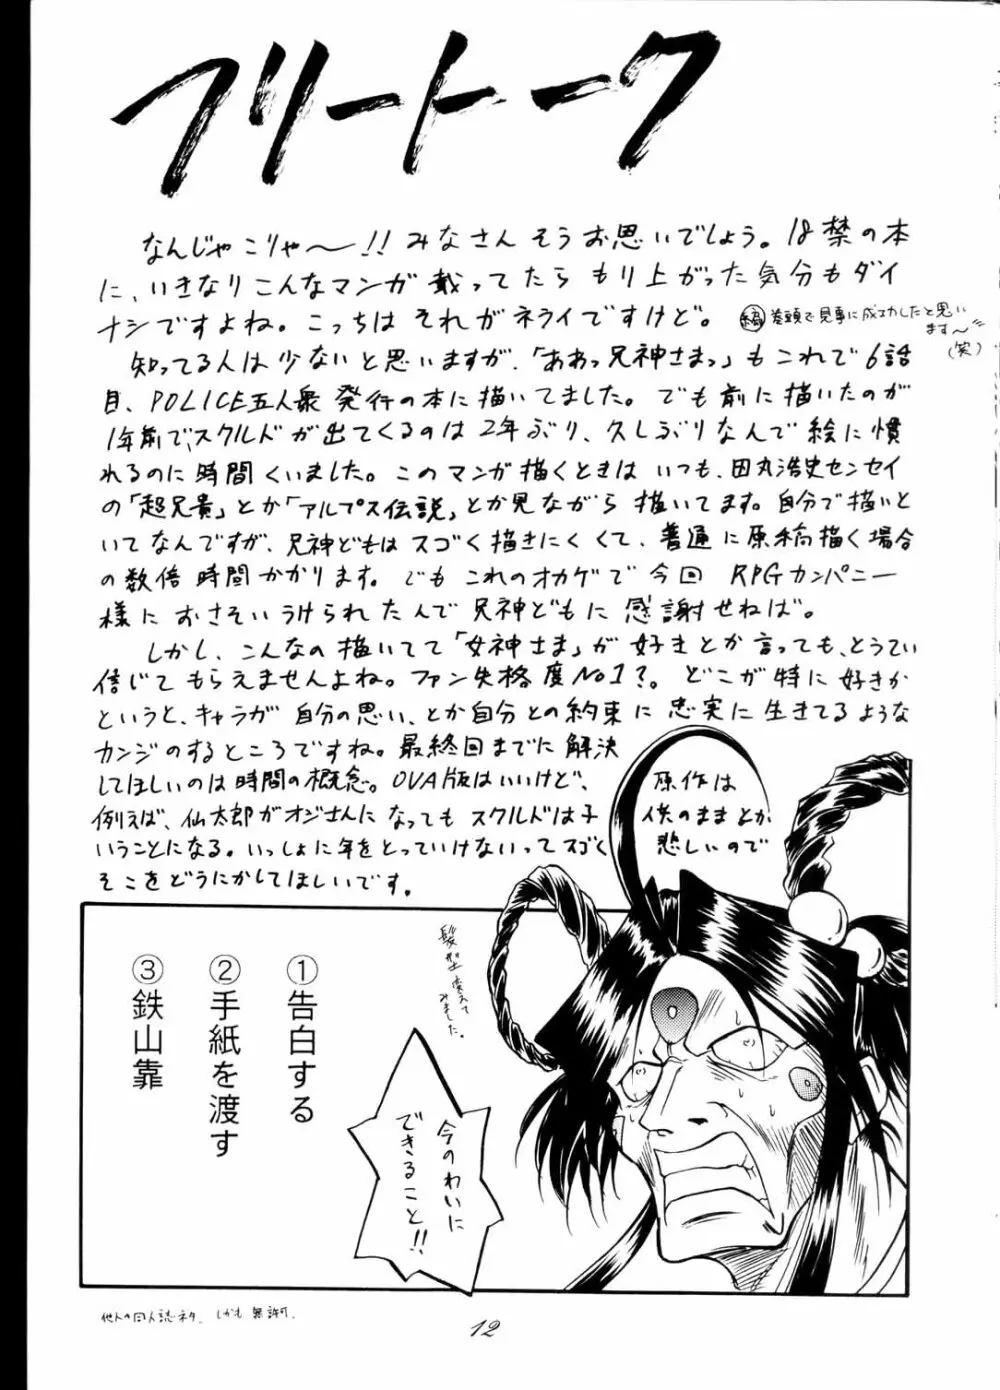 フリートーク
なんじゃこりゃ〜!! みなさんそうお思いでしょう。18禁の本
に、いきなりこんなマンガ載ってたらもり上がった気分もダイ
ナシですよね。こっちはそれがネライですけど。
巻頭で見事に成功したと思い
ます〜!!
(笑)
知ってる人は少ないと思いますが、「ああっ兄神さまっ」もこれで6話
目、POLICE五人衆発行の本に描いてました。でも前に描いたのが
1年前で、スクルドが出てくるのは2年ぶり、久しぶりなんで絵に慣
れるのに時間くいました。このマンガ描くときはいつも、田丸浩史センセイ
の「超兄貴」とか「アルプス伝説」とか見ながら描いてます。自分で描いと
いてなんですが、兄神どもはスゴく描きにくくて、普通に原稿描く場合
の数倍時間かかります。でもこれのオカゲで今回RPGカンパニー
様におさそいうけられたんで兄神どもに感謝せねば。
しかし、こんなの描いてて「女神さま」が好きとか言っても、とうてい
信じてもらえませんよね。ファン失格度No1?。どこが特に好きか
というと、キャラが自分の思い、とか自分との約束に忠実に生きてるような
カンジのするところですね。最終回までに解決
してほしいのは時間の概念。OVA版はいいけど、
原作は
例えば、仙太郎がオジさんになってもスクルドは子
供のままとか
いうことになる。いっしょに年をとっていけないってスゴく
悲しいので
そこをどうにかしてほしいです。
①告白する
②手紙を渡す
③鉄山靠
髪型変えて
みました。
今のわいに
できること!!
他人の同人誌ネタ。しかも無許可。
12